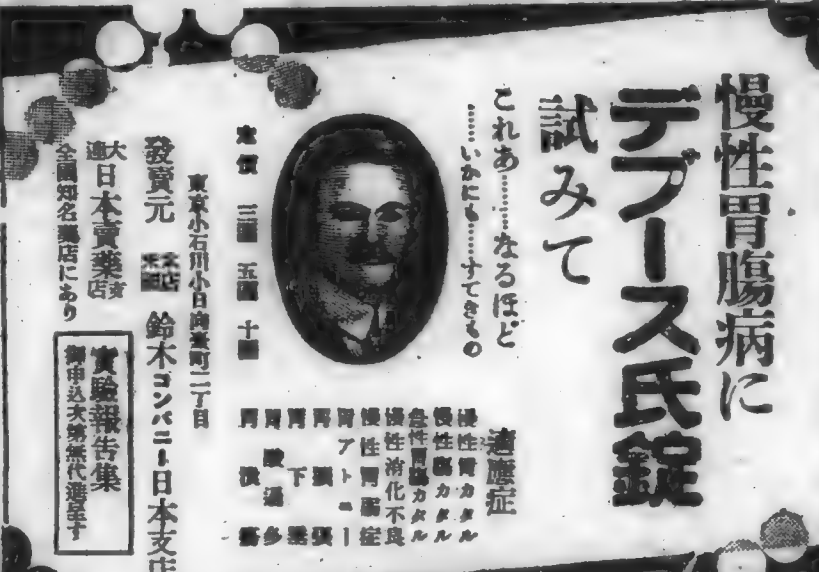 慢性胃腸病に
デブース氏錠
試みて
これあ………なるほど
……いかにも……すてきもの
適應症
慢性胃カタル
慢性腸カタル
急性胃腸カタル
慢性消化不良
慢性胃腸症
胃アトニー
胃擴張
胃下垂
胃酸過多
胃潰瘍
定價 三圓 五圓 十圓
東京小石川小日向臺町二丁目
發賣元 鈴木コンパニー日本支店
大連日本賣藥支店
全國知名藥店にあり
實驗報告集
御申込次第無代進呈す